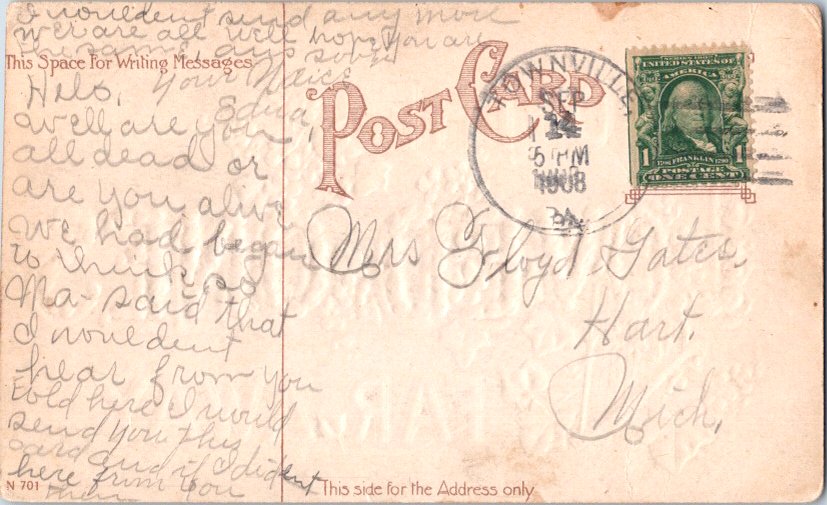 I wouldent send any more
We are all well hope you are
the same, ans soon
This Space For Writing Messages
Your Neice
Edna,
Helo,
Well are you
all dead or
are you alive
We had began
to think so
Ma said that
I wouldent
hear from you
told here I would
send you this
card and if I dident
here from you
then
N 701
POST CARD
TOWNVILLE,
SEP
14
5 PM
1908
PA.
SERIES 1902
UNITED STATES OF
AMERICA
1 FRANKLIN 1
POSTAGE
ONE CENT
Mrs Floyd Gates,
Hart.
Mich,
This side for the Address only